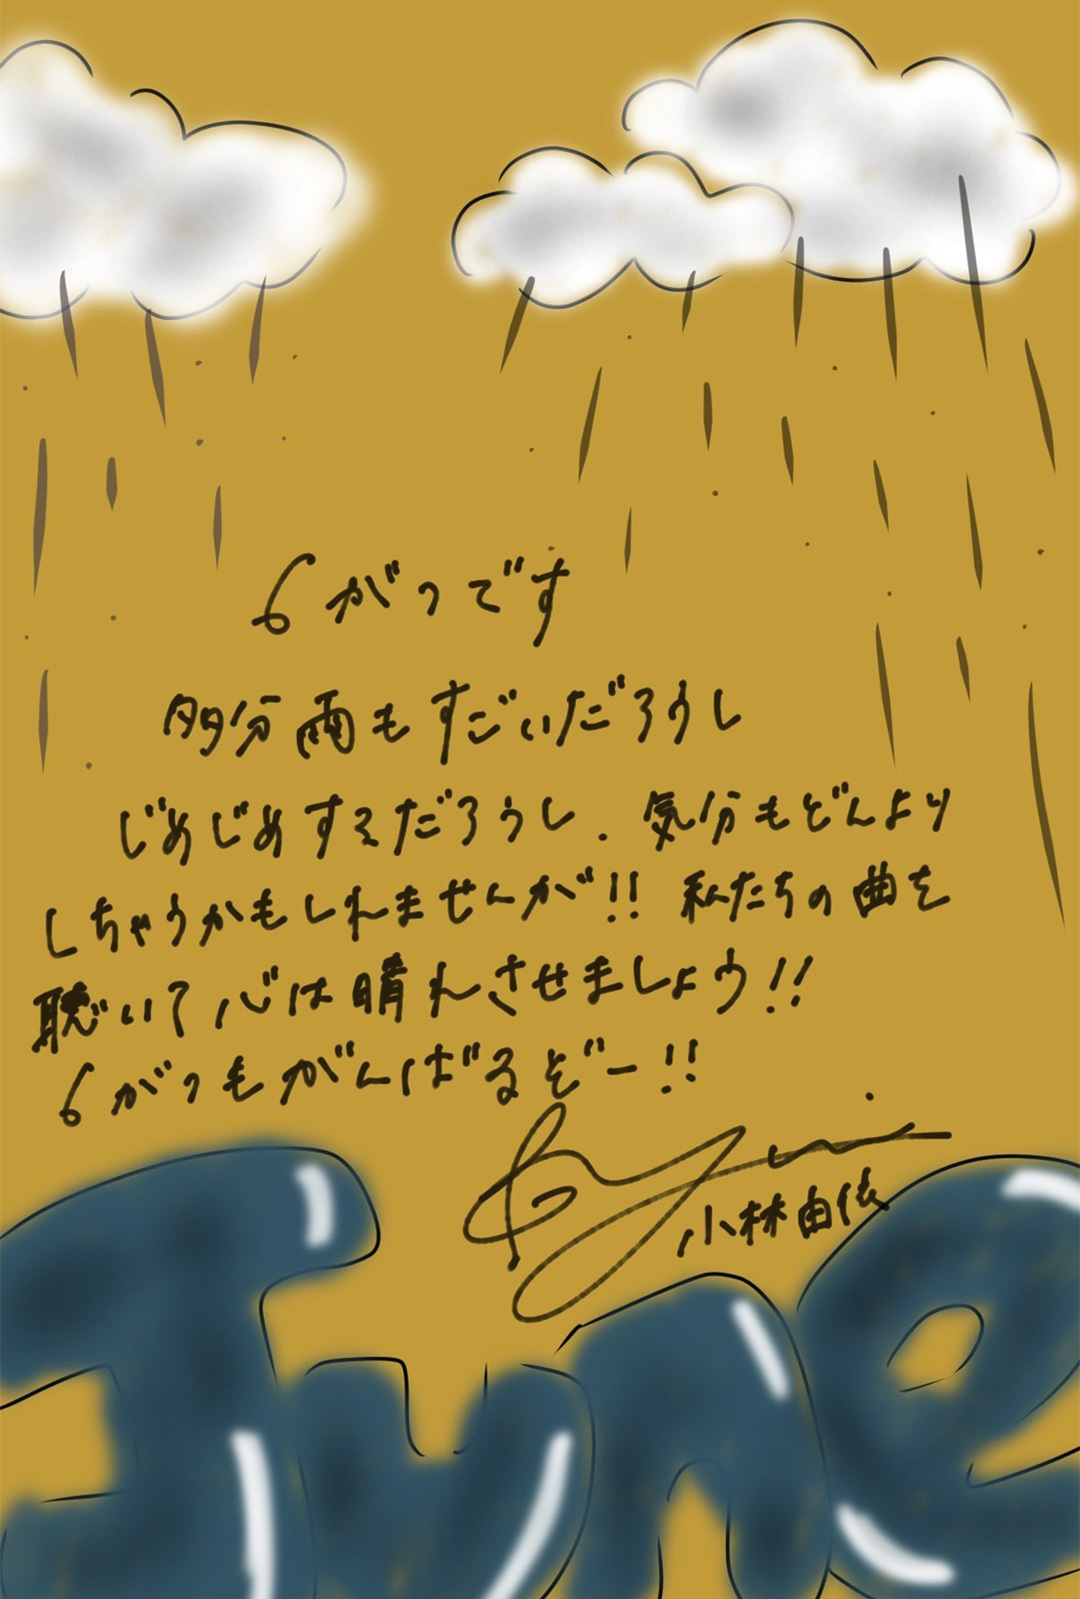 6がつです
多分雨もすごいだろうし
じめじめするだろうし、気分もどんより
しちゃうかもしれませんが!! 私たちの曲を
聴いて心は晴れさせましょう!!
6がつもがんばるぞー!!
小林由依
June